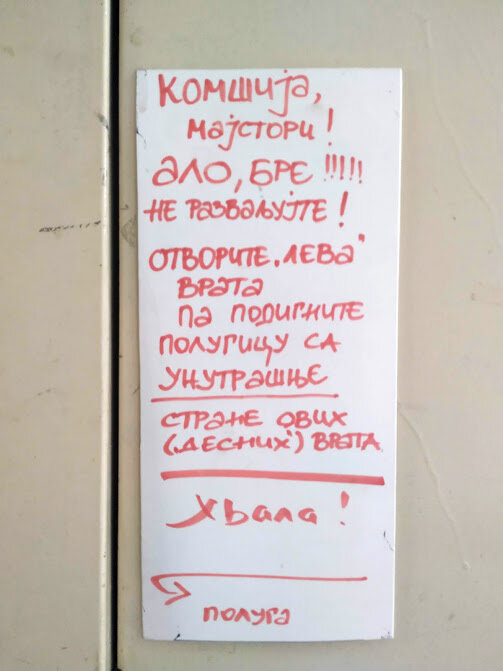 Комшија,
мајстори!
АЛО, БРЕ !!!!!
НЕ РАЗВАЉУЈТЕ!
ОТВОРИТЕ „ЛЕВА"
ВРАТА
ПА ПОДИГНИТЕ
ПОЛУГИЦУ СА
УНУТРАШЊЕ
СТРАНЕ ОВИХ
(„ДЕСНИХ") ВРАТА
Хвала!
полуга